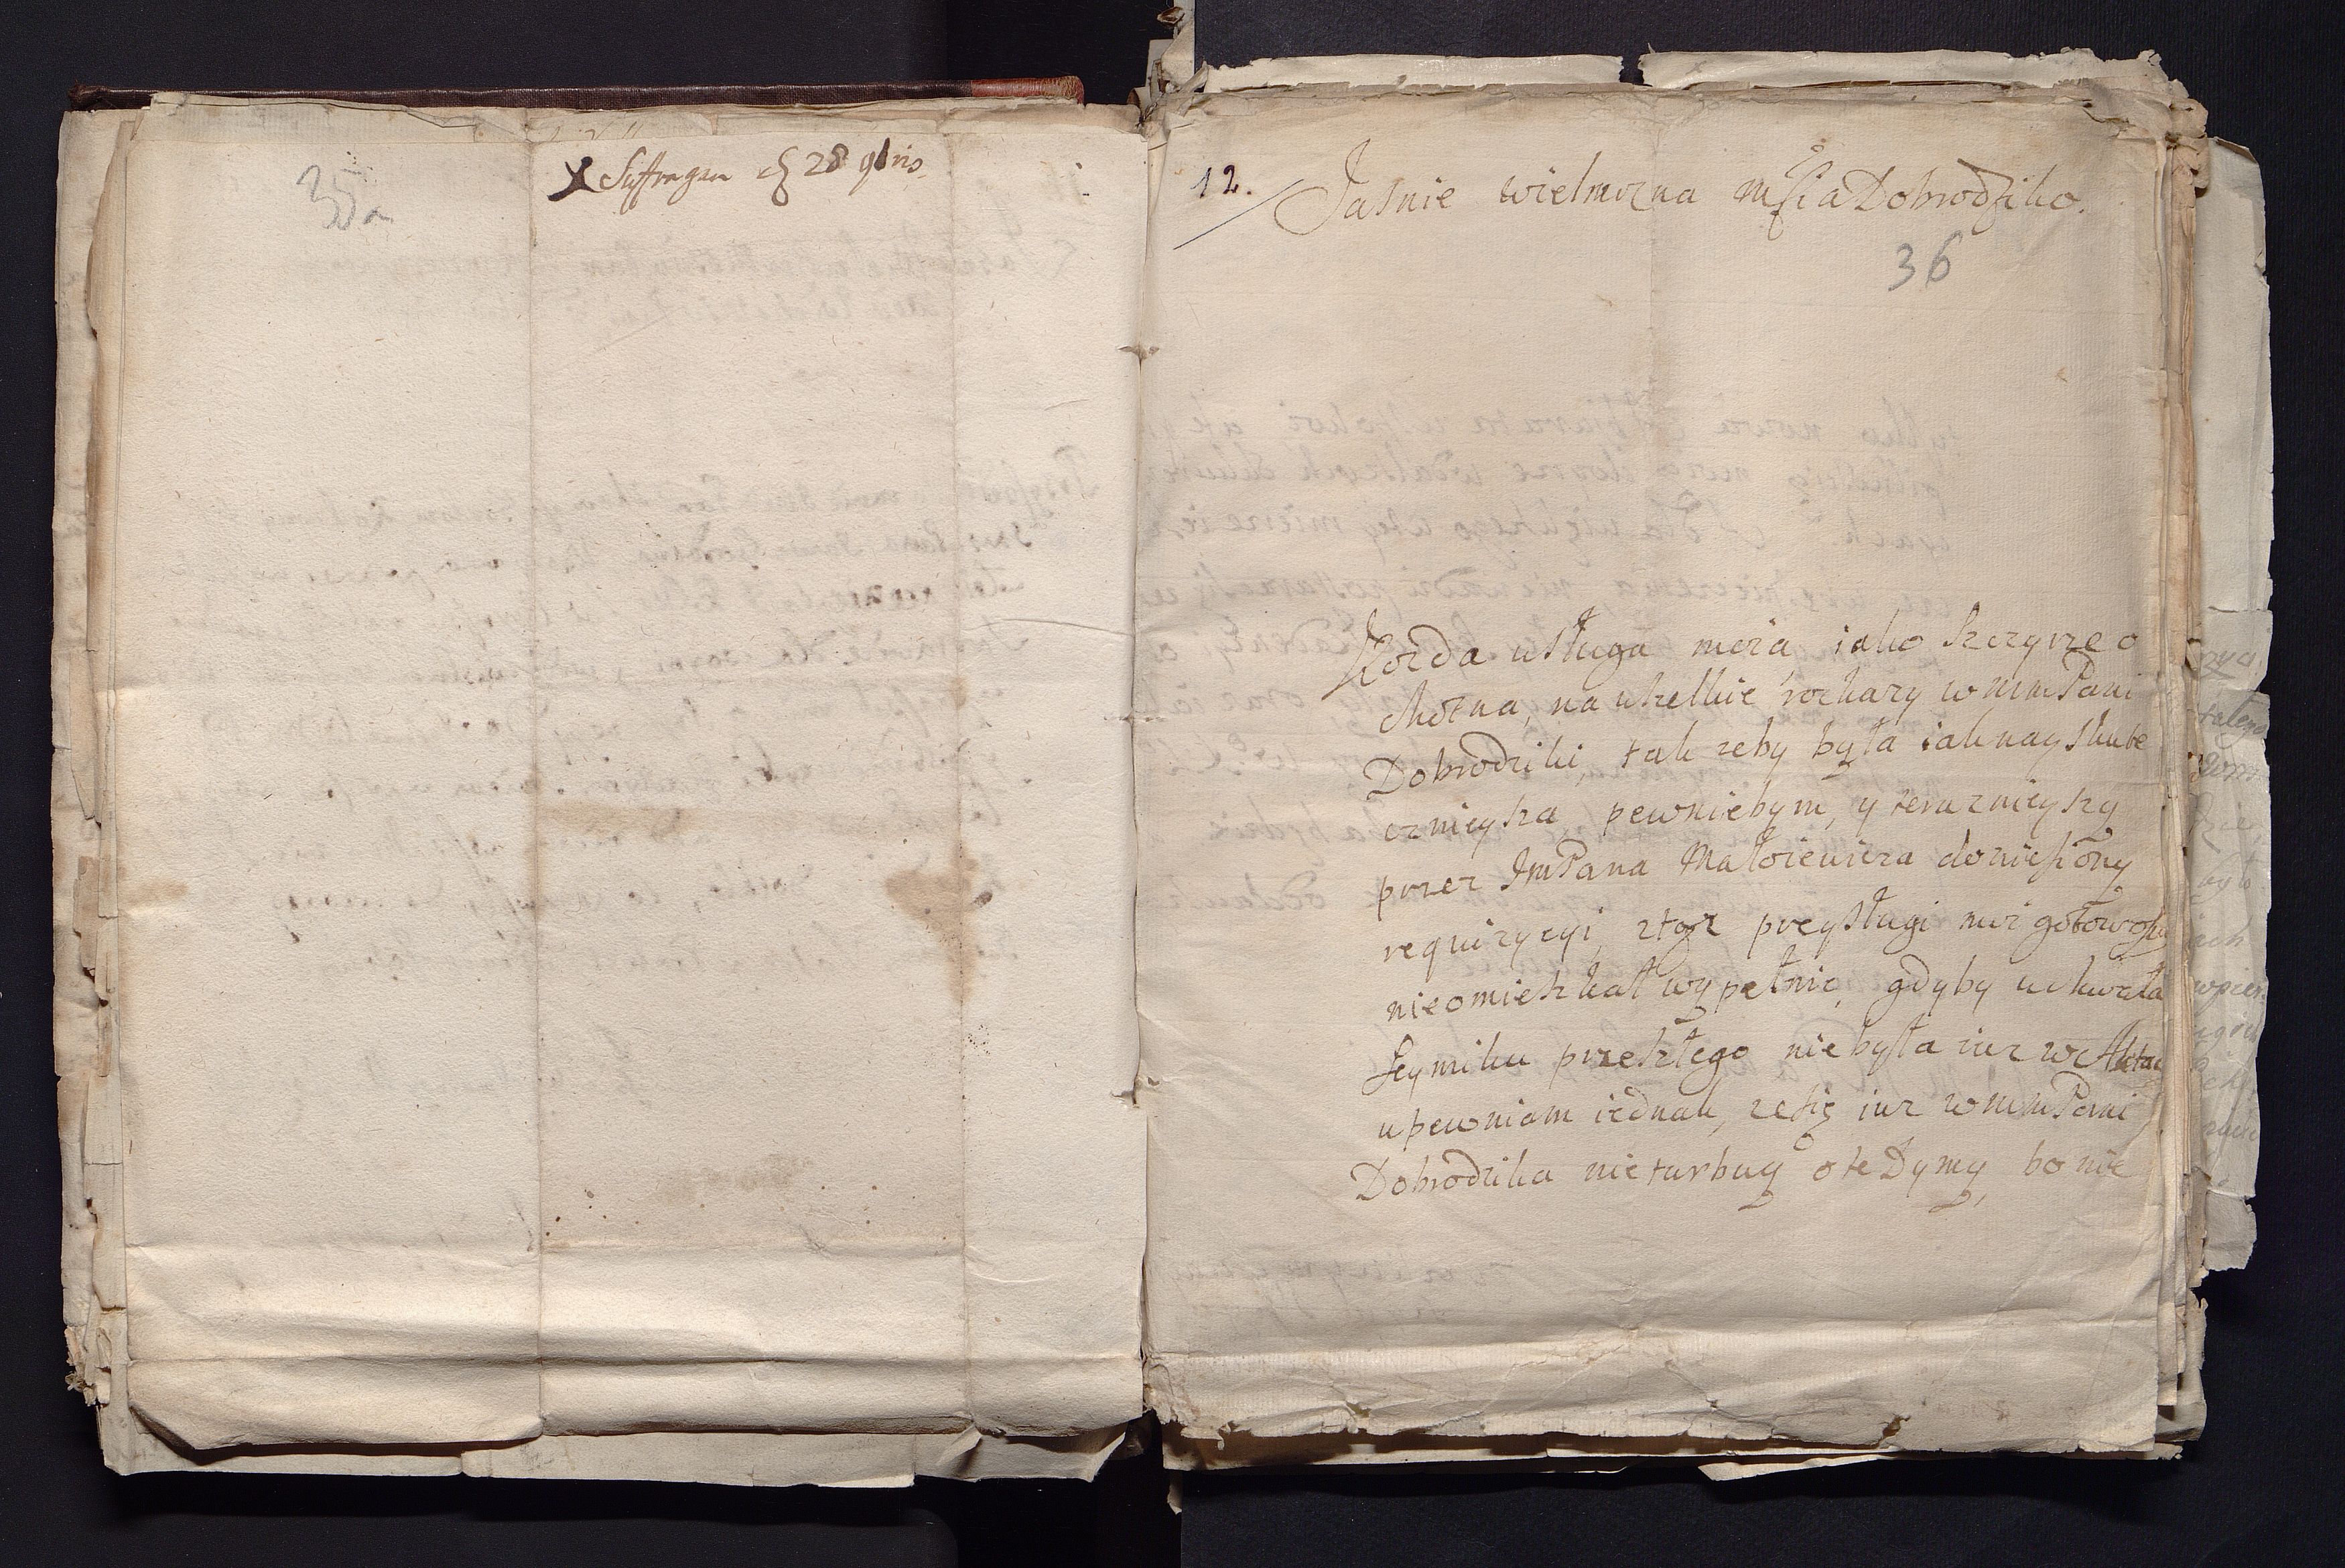 35a
X Suffragan 28 9bris
12.
Jasnie wielmozna mścia Dobrodziko.
36
Kozda usługa moia iako szczyrze o
chotna, na wszelkie roskazy wmmPani
Dobrodziki, tak zeby była iak nayskute
cznieysza, pewniebym, y teraznieyszy
przez JmPana Matoiewicza doniesiony
requizycyi, ztąz przysługi moi gotowosci
nieomieszkał wypełnic, gdyby uchwała
Seymiku przeszłego niebyła iuz w Aktac
upewniam iednak, zesię iuz wmmPani
Dobrodzika nieturbuy ote Dymy, bo nie